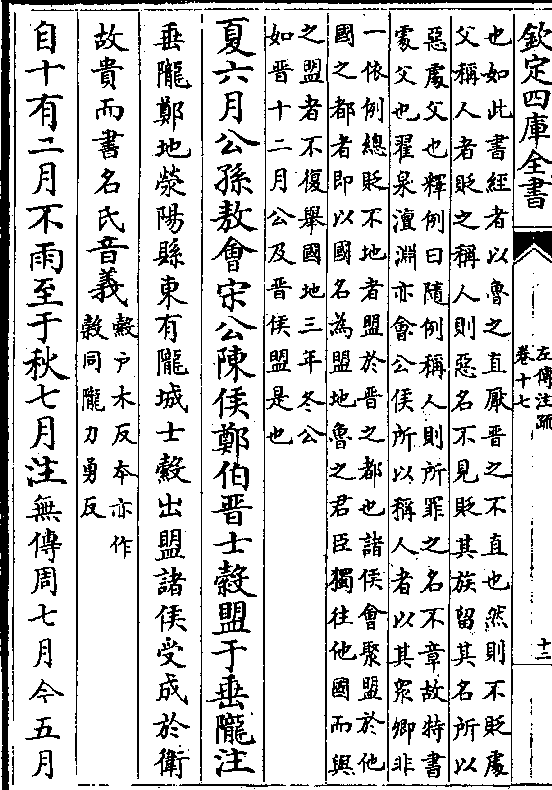 欽定四庫全書
左傳注疏
卷十七
十二
也如此書經者以魯之直厭晉之不直也然則不貶處
父稱人者貶之稱人則惡名不見貶其族留其名所以
惡處父也釋例曰隨例稱人則所罪之名不章故特書
處父也翟泉澶淵亦會公侯所以稱人者以其衆卿非
一依例總貶不地者盟於晉之都也諸侯會聚盟於他
國之都者即以國名為盟地魯之君臣獨往他國而與
之盟者不復舉國地三年冬公
如晉十二月公及晉侯盟是也
夏六月公孫敖會宋公陳侯鄭伯晉士縠盟于垂隴注
垂隴鄭地滎陽縣東有隴城士縠出盟諸侯受成於衛
故貴而書名氏音義
縠户木反本亦作
穀同隴力勇反
自十有二月不雨至于秋七月注無傳周七月今五月